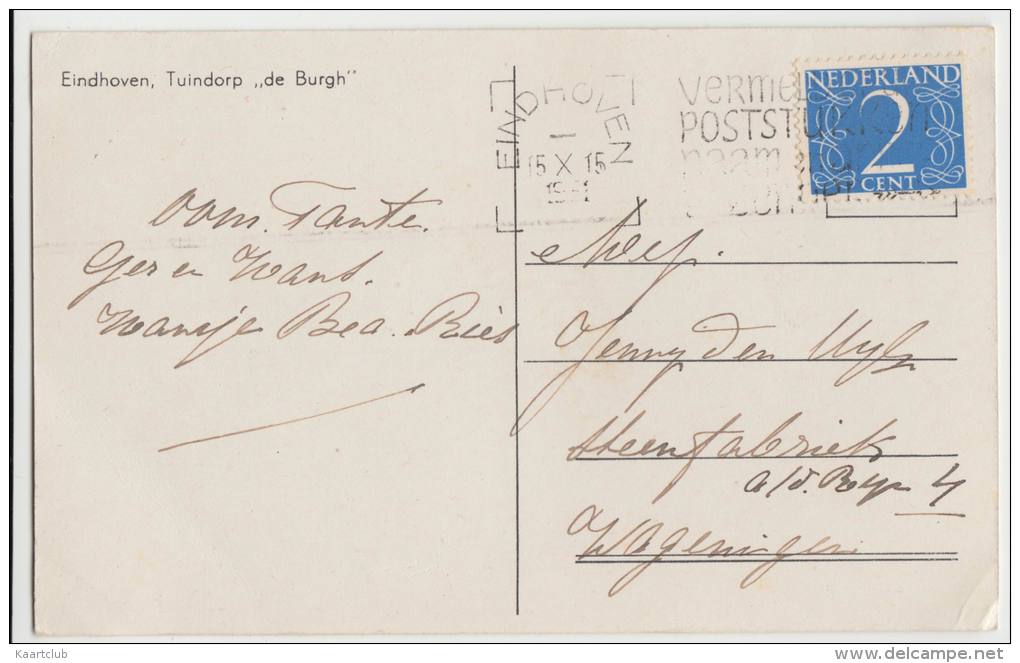 Eindhoven, Tuindorp „de Burgh"
EINDHOVEN
15 X 15
POSTSTUKKEN
naam
NEDERLAND
2
CENT
Oom. Tante.
Ger en Wans.
Wansje Bea. Riet
Mej.
Jenny den Uyl
Steenfabriek
a/d. Rijn 4
Wageningen
Kaartclub
www.delcampe.net